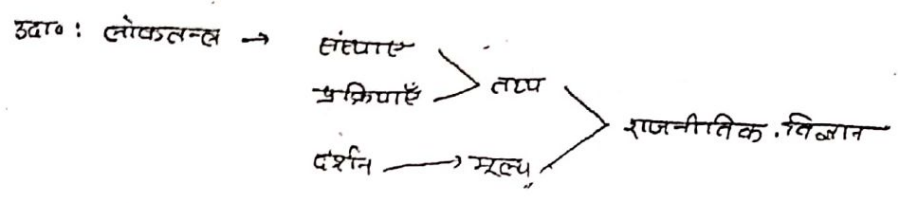 उदा० : लोकतन्त्र → संस्थाएं
प्रक्रियाएँ → तथ्य
दर्शन → मूल्य
राजनीतिक विज्ञान